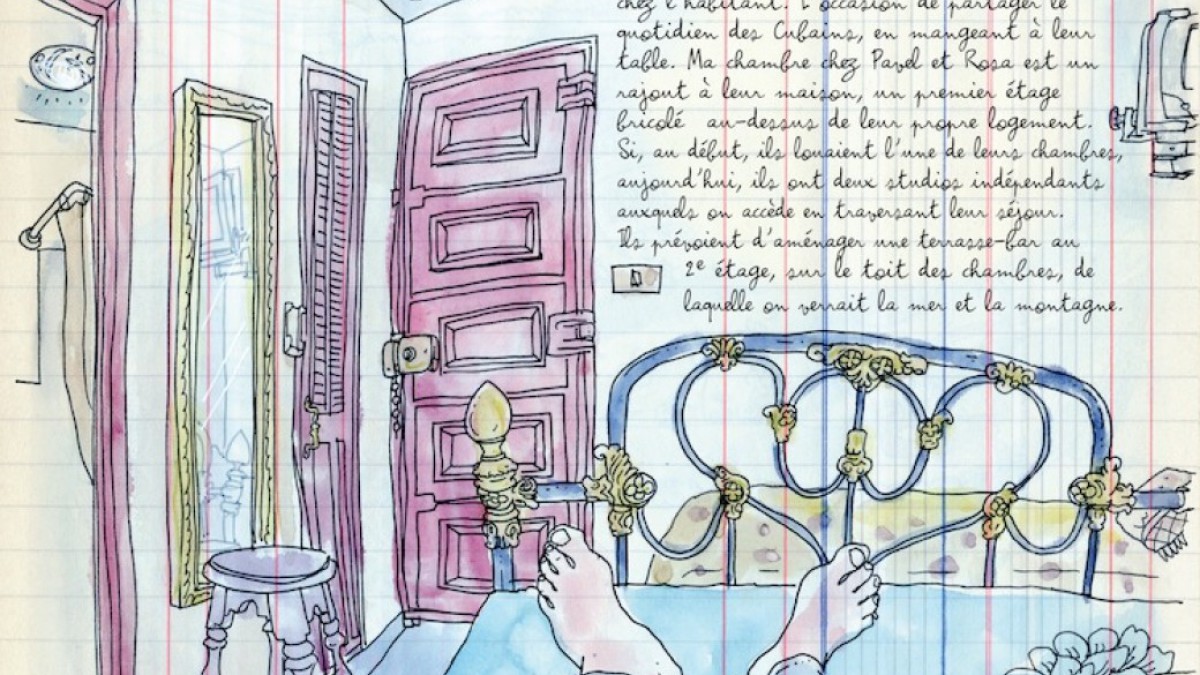 chez l'habitant. L'occasion de partager le
quotidien des Cubains, en mangeant à leur
table. Ma chambre chez Pavel et Rosa est un
rajout à leur maison, un premier étage
bricolé au-dessus de leur propre logement.
Si, au début, ils louaient l'une de leurs chambres,
aujourd'hui, ils ont deux studios indépendants
auxquels on accède en traversant leur séjour.
Ils prévoient d'aménager une terrasse-bar au
2e étage, sur le toit des chambres, de
laquelle on verrait la mer et la montagne.